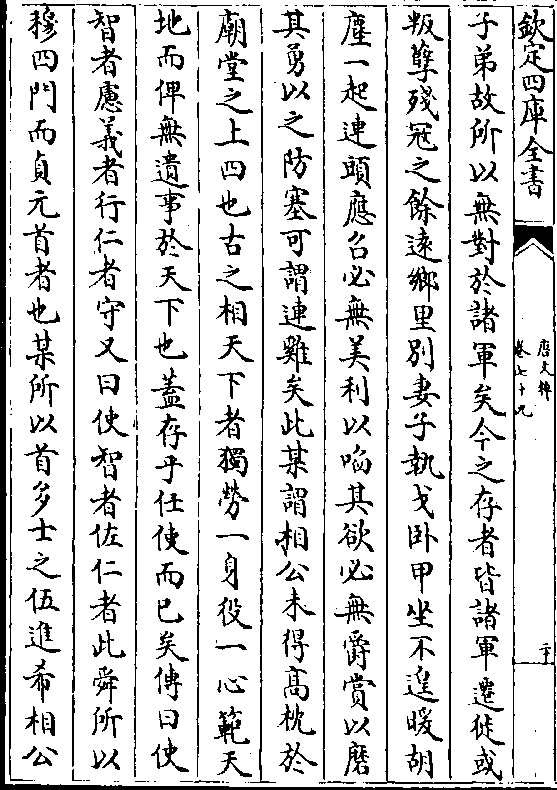 欽定四庫全書
唐文粹
卷七十九
二十
子弟故所以無對於諸軍矣今之存者皆諸軍遷徙或
叛孽殘冦之餘逺鄉里別妻子執戈卧甲坐不遑暖胡
塵一起連頭應召必無美利以啗其欲必無爵賞以磨
其勇以之防塞可謂連雞矣此某謂相公未得髙枕於
廟堂之上四也古之相天下者獨勞一身役一心範天
地而俾無遺事於天下也蓋存乎任使而已矣傳曰使
智者慮義者行仁者守又曰使智者佐仁者此舜所以
穆四門而貞元首者也某所以首多士之伍進希相公